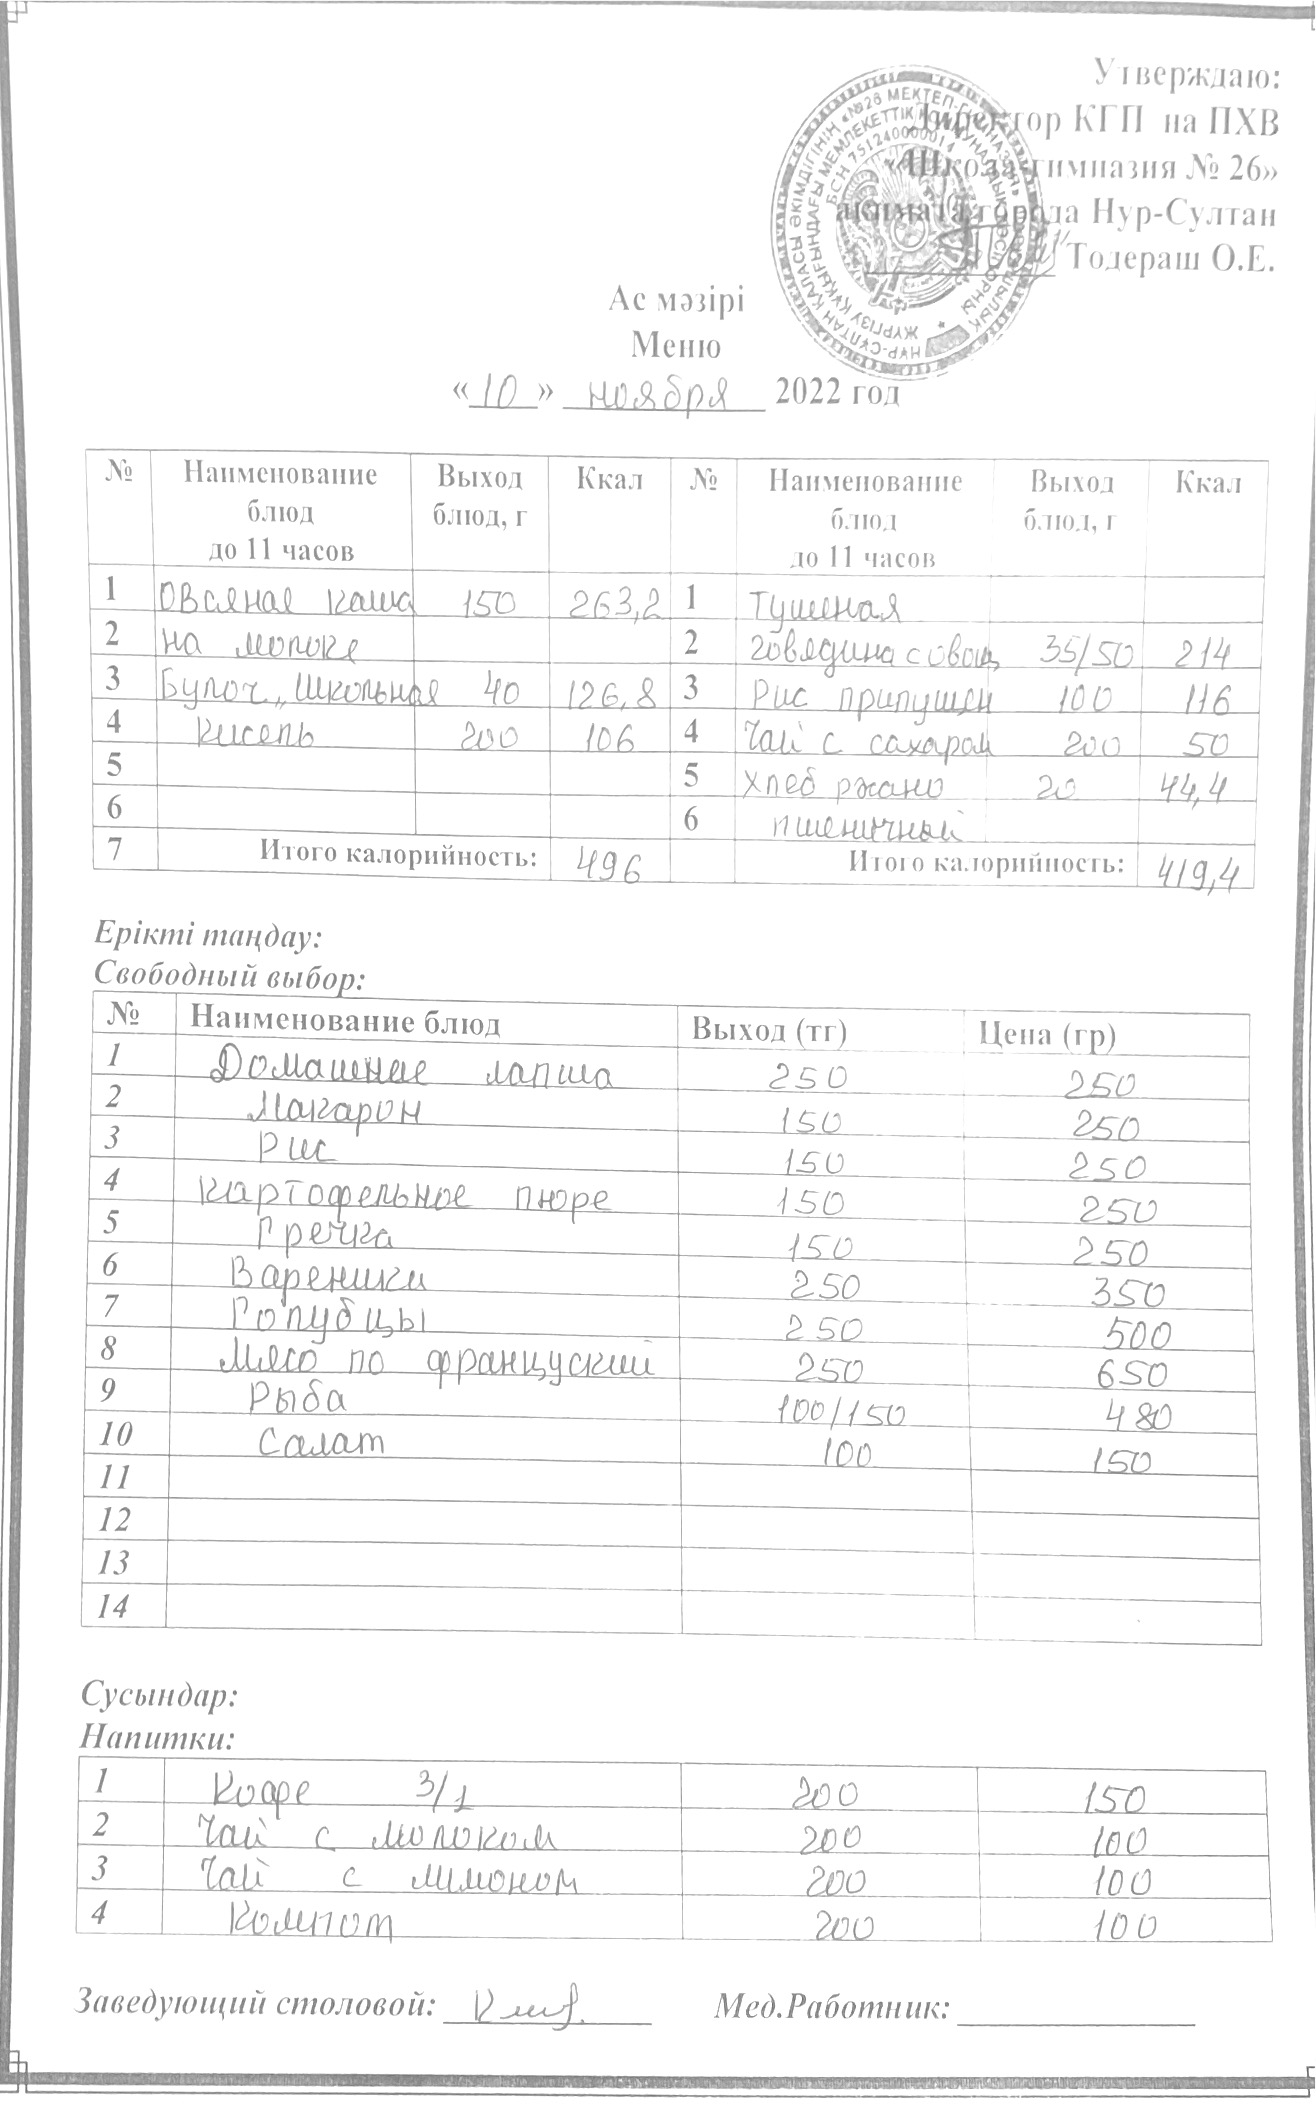 Утверждаю:
Директор КГП на ПХВ
«Школа-гимназия № 26»
акимата города Нур-Султан
Тодераш О.Е.
Ас мәзірі
Меню
«10» ноября 2022 год
№ Наименование блюд до 11 часов Выход блюд, г Ккал № Наименование блюд до 11 часов Выход блюд, г Ккал
1 Овсяная каша 150 263,2 1 Тушеная
2 на молоке 2 говядина с овощ 35/50 214
3 Булоч „Школьная 40 126,8 3 Рис припущен 100 116
4 Кисель 200 106 4 Чай с сахаром 200 50
5 5 Хлеб ржано 20 44,4
6 6 пшеничный
7 Итого калорийность: 496 Итого калорийность: 419,4
Ерікті таңдау:
Свободный выбор:
№ Наименование блюд Выход (тг) Цена (гр)
1 Домашнае лапша 250 250
2 Макарон 150 250
3 Рис 150 250
4 Картофельное пюре 150 250
5 Гречка 150 250
6 Вареники 250 350
7 Голубцы 250 500
8 Мясо по француский 250 650
9 Рыба 100/150 480
10 Салат 100 150
11
12
13
14
Сусындар:
Напитки:
1 Кофе 3/1 200 150
2 Чай с молоком 200 100
3 Чай с лимоном 200 100
4 Компот 200 100
Заведующий столовой: Мед.Работник: